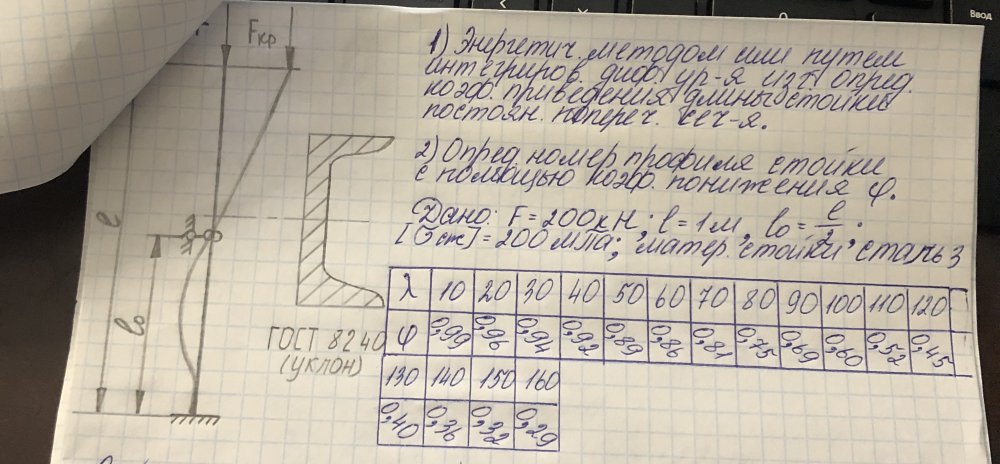 Fкр
1) Энергетич. методом или путем
интегриров. диф. ур-я изг. опред.
коэф. приведения длины стойки
постоян. попереч. сеч-я.
2) Опред. номер профиля стойки
с помощью коэф. понижения φ.
Дано: F = 200кН; l = 1м, l₀ = l/2;
[σсж] = 200 МПа; матер. стойки сталь 3
l
l₀
ГОСТ 8240
(уклон)
λ 10 20 30 40 50 60 70 80 90 100 110 120
φ 0,99 0,96 0,94 0,92 0,89 0,86 0,81 0,75 0,69 0,60 0,52 0,45
130 140 150 160
0,40 0,36 0,32 0,29
Ввод